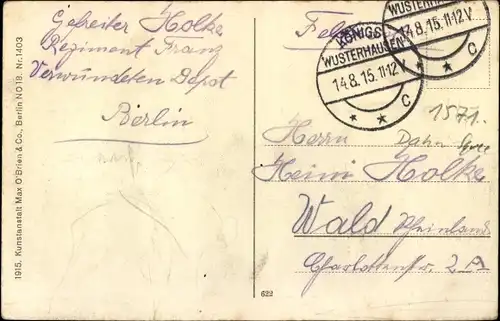 Gefreiter Holke
Regiment Franz
Verwundeten Depot
Berlin
1915. Kunstanstalt Max O'Brien & Co., Berlin NO18. Nr. 1403
KÖNIGS
WUSTERHAUSEN
14.8.15.11-12V
* * C
WUSTERHAUSEN
14.8.15.11-12V
* C
1571.
Herrn
Heini Holke
Wald Rheinland
Charlottenstr. 2A
622